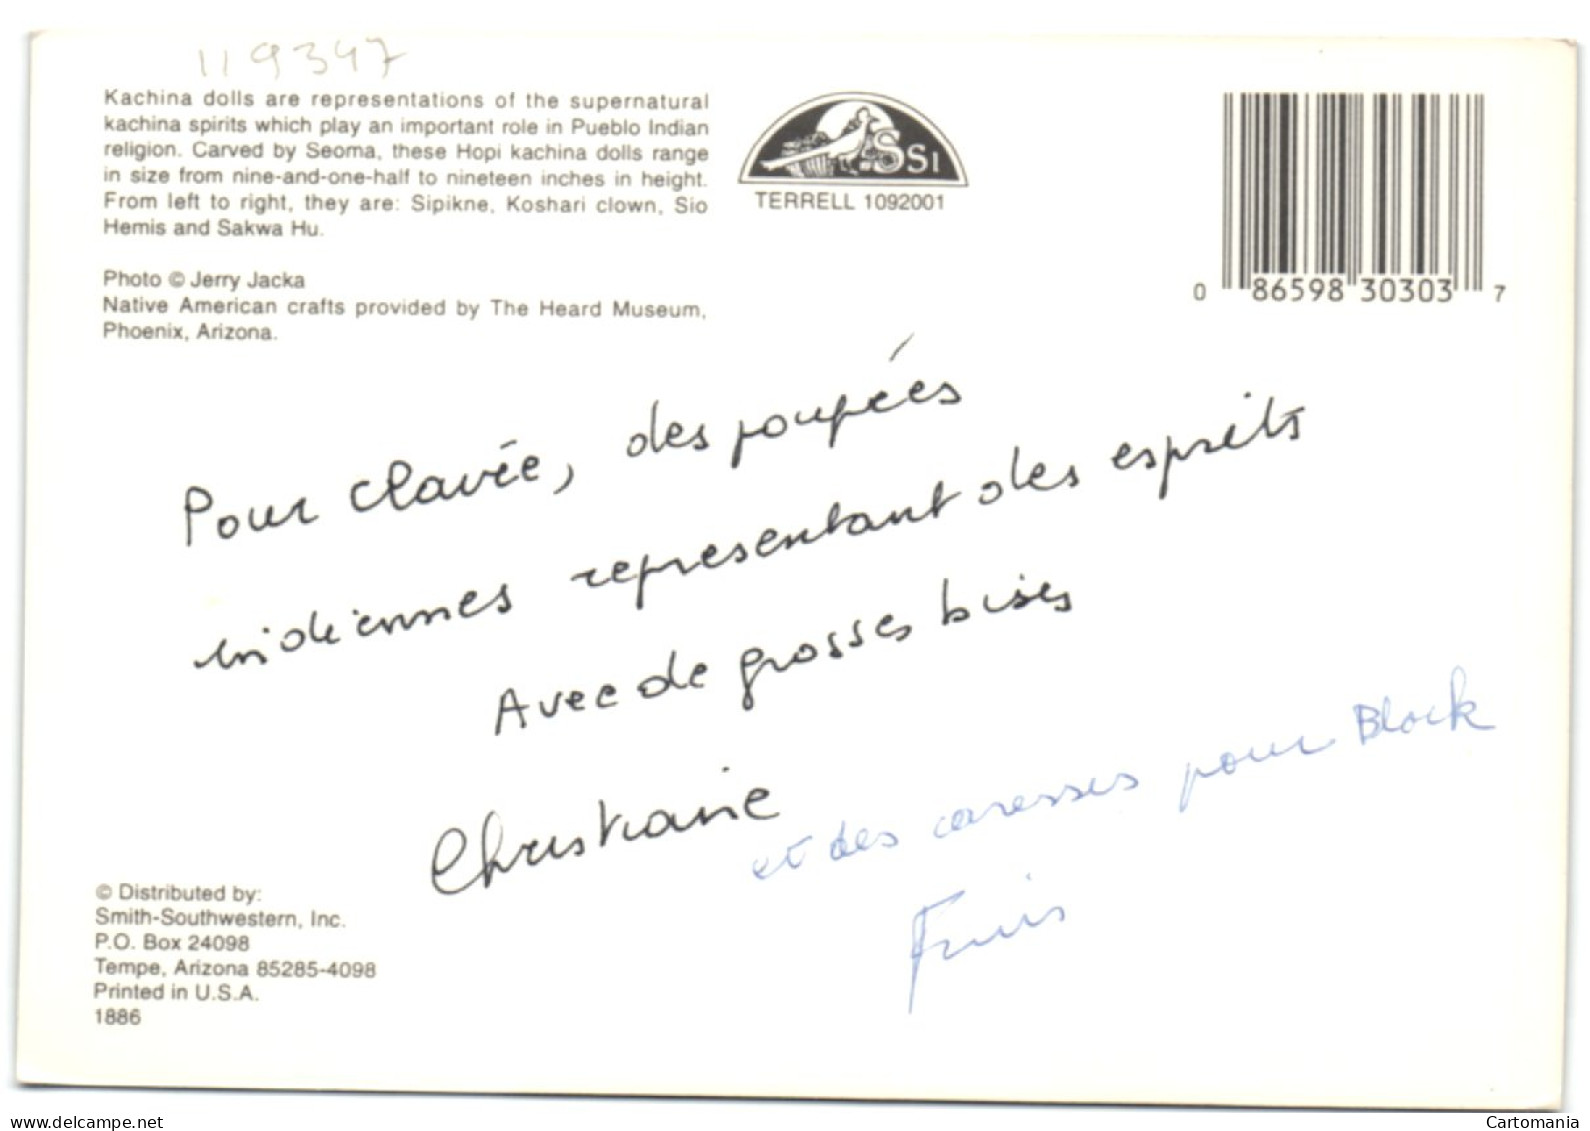 119347
Kachina dolls are representations of the supernatural
kachina spirits which play an important role in Pueblo Indian
religion. Carved by Seoma, these Hopi kachina dolls range
in size from nine-and-one-half to nineteen inches in height.
From left to right, they are: Sipikne, Koshari clown, Sio
Hemis and Sakwa Hu.
Photo © Jerry Jacka
Native American crafts provided by The Heard Museum,
Phoenix, Arizona.
SSI
TERRELL 1092001
0 86598 30303 7
Pour Clavée, des poupées
indiennes representant des esprits
Avec de grosses bises
Christiane
et des caresses pour Black
© Distributed by:
Smith-Southwestern, Inc.
P.O. Box 24098
Tempe, Arizona 85285-4098
Printed in U.S.A.
1886
www.delcampe.net
Cartomania